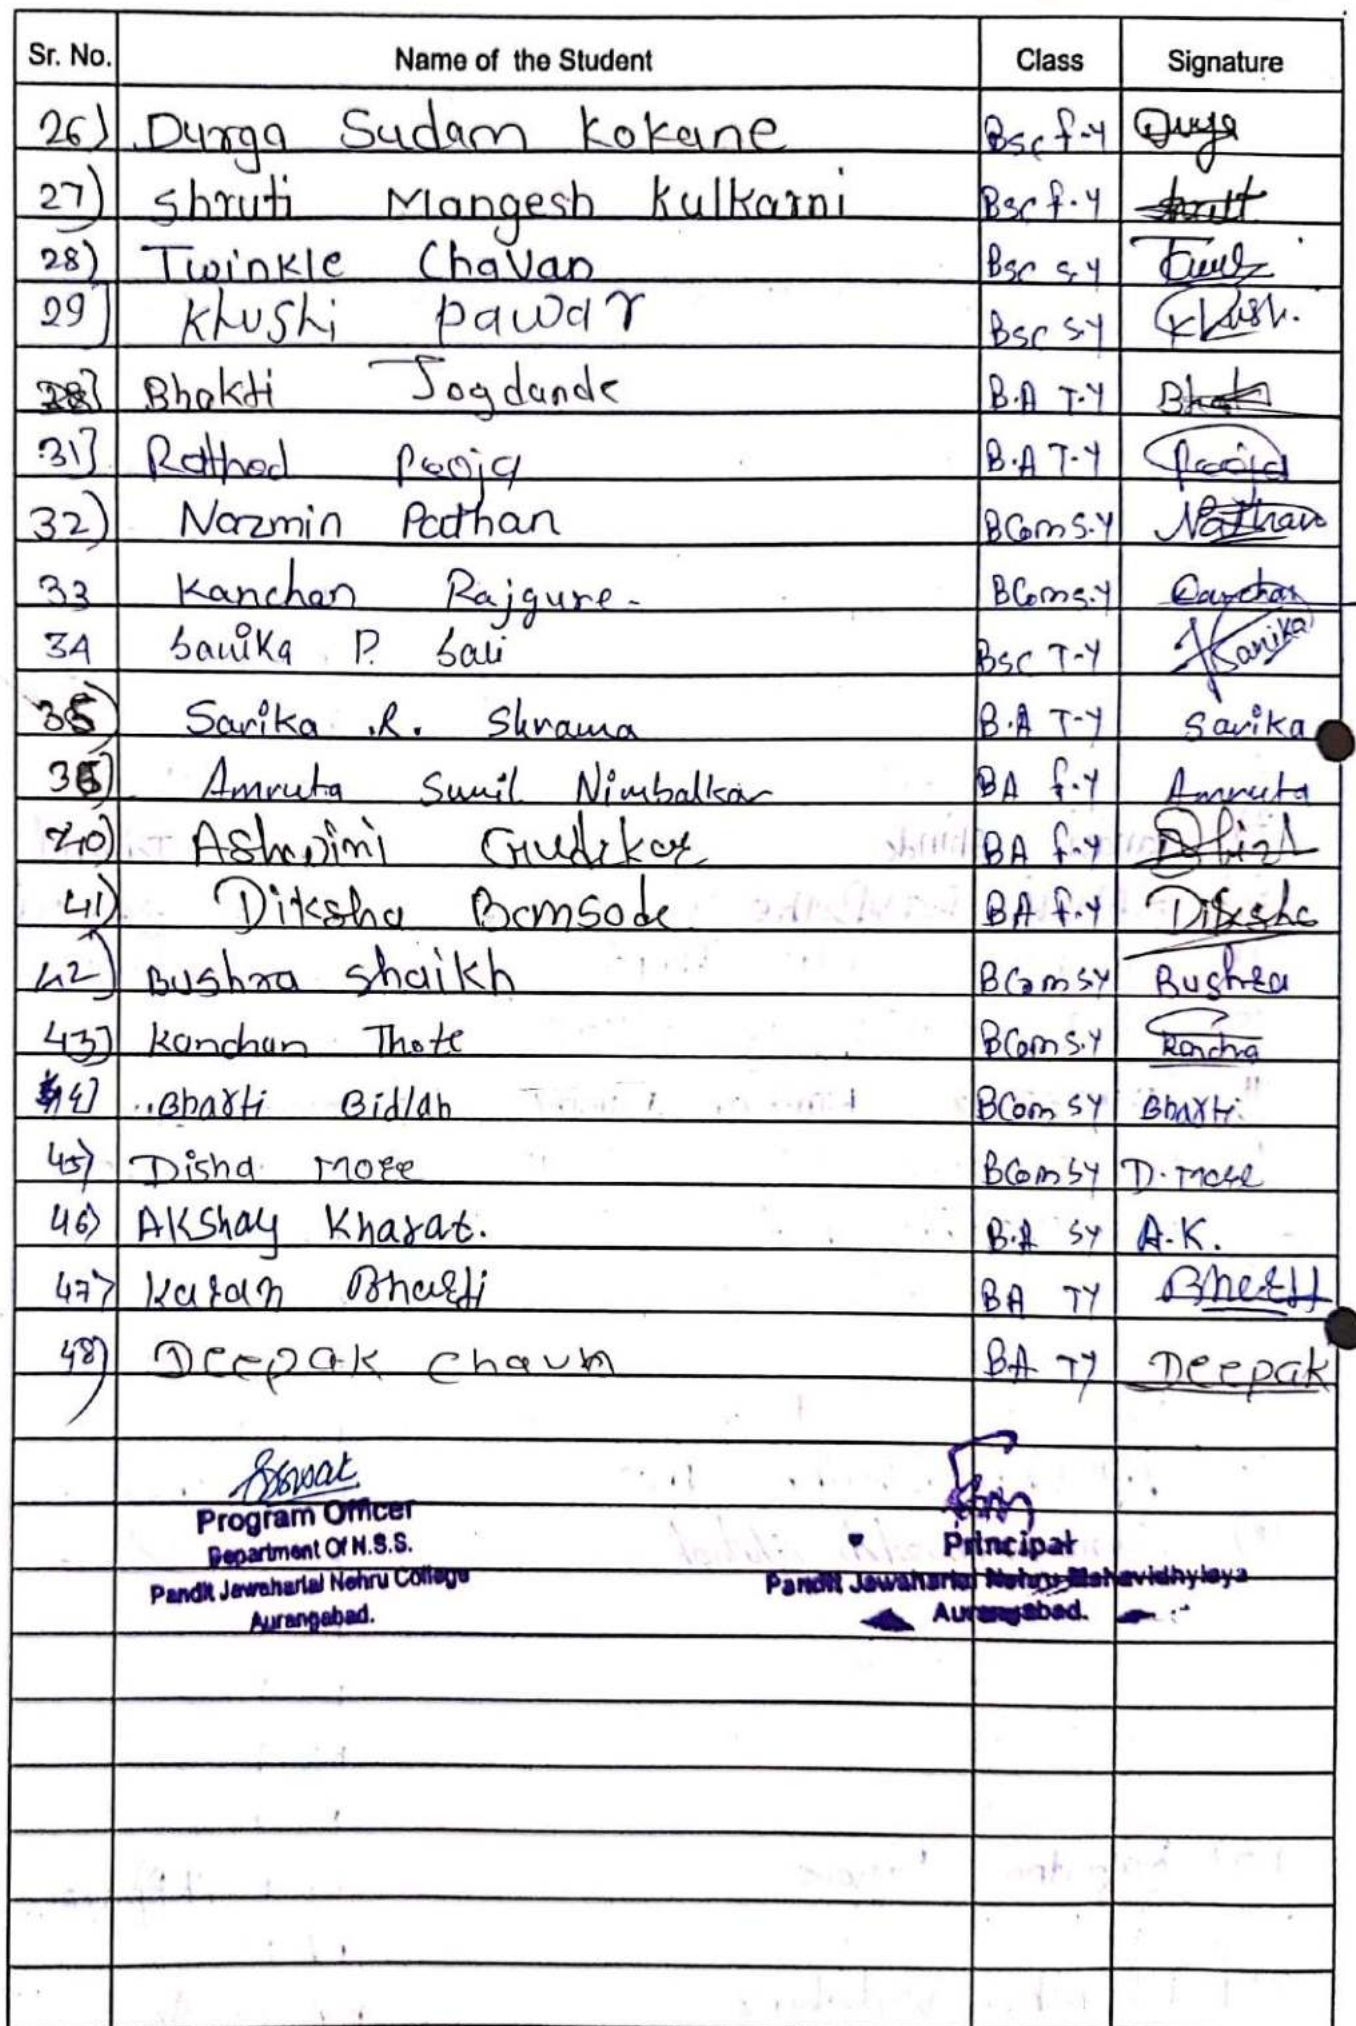 Sr. No. Name of the Student Class Signature
26) Durga Sudam Kokane Bsc f-y Durga
27) Shruti Mangesh Kulkarni Bsc f.y
28) Twinkle Chavan Bsc s.y
29] Khushi pawar Bsc sy Khush.
Bhakti Jogdande B.A T-y
31] Rathod Pooja B.A T-y Pooja
32) Nazmin Pathan BCom S.y Nathan
33 Kanchan Rajgure- BCom s.y Canchan
34 P. Bsc T-y Sarika
35) Sarika .R. Shrama B.A T-y Sarika
36) Amruta Sunil Nimbalkar BA f.y Amruta
40) Ashwini Gudikar BA f-y
41) Diksha Bamsode BA f.y Diksha
42) Bushra Shaikh BCom sy Bushra
43) Kanchan Thote BCom S.y Kancha
44] Bharti Bidlah BCom sy Bharti
45) Disha more BCom sy D. more
46) Akshay Kharat. B.A sy A.K.
47) Karan Bharti BA TY Bharti
48) Deepak BA TY Deepak
Program Officer
Department Of N.S.S.
Pandit Jawaharlal Nehru College
Aurangabad.
Principal
Pandit Jawaharlal Nehru Mahavidhylaya
Aurangabad.